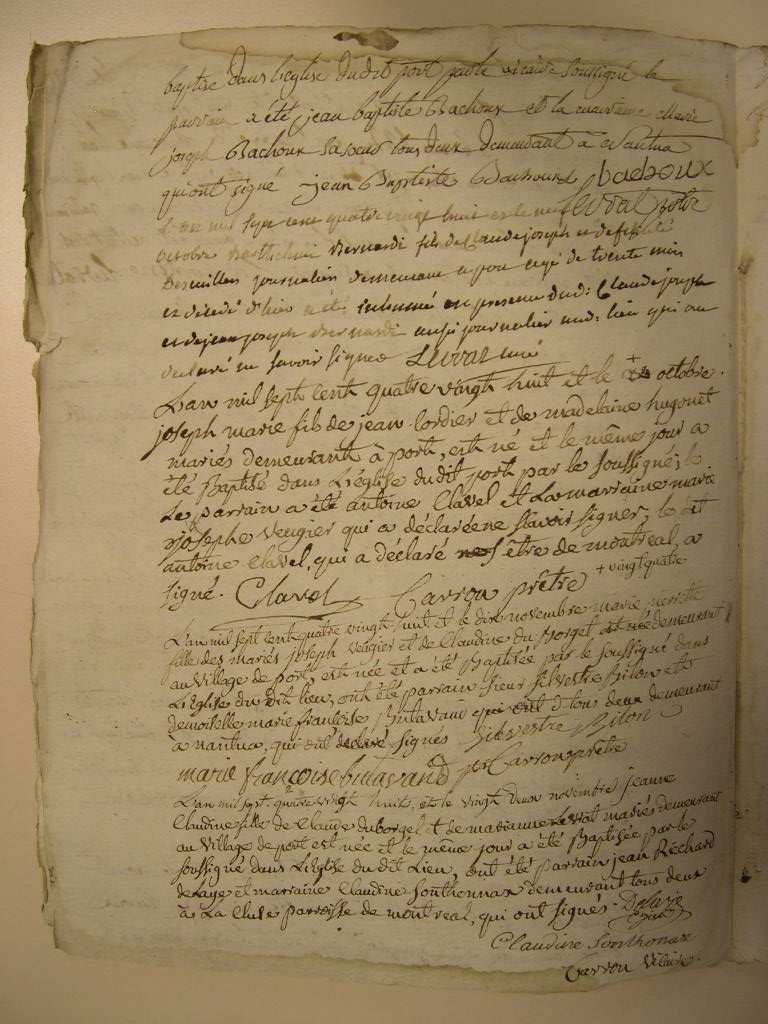 baptisé dans leglise dudit port par le vicaire soussigné le
parrain a été jean baptiste Bachoux et la marraine Marie
joseph Bachoux sa soeur tous deux demeurant a Nantua
qui ont signé jean Baptiste Bachoux bachoux
L'an mil sept cent quatre vingt huit et le neuf Levrat
octobre Berthelmi Bernardi fils de Claude joseph et de
journalier demeurant a port agé de trente
et décédé d'hier a été inhumé en presence dud: Claude joseph
et de jean joseph Bernardi aussi journalier aud: lieu qui ont
declaré ne savoir signer Levrat curé
L'an mil sept cent quatre vingt huit et le + octobre.
joseph marie fils de jean Cordier et de madelaine hugonet
mariés demeurant à port, est né et le même jour a
été Baptisé dans L'église dudit port par le soussigné; le
Le parrain a été antoine Clavel et La marraine marie
josephe Veugier qui a déclaréene sçavoir signer, le dit
antoine Clavel, qui a déclaré être de montreal, a
signé. Clavel Carron prêtre + vingt quatre.
L'an mil sept cent quatre vingt huit et le dix novembre marie pierrette
fille des mariés joseph Veugier et de Claudine du Borget demeurant
au village de port, est née et a été Baptisée par le soussigné dans
L'Eglise du dit lieu, ont été parrain sieur silvestre Bilon et
demoiselle marie françoise Butavant tous deux demeurant
à nantua, qui ont declaré signés Silvestre Bilon
marie françoise butavand Carron prêtre
L'an mil sept quatre vingt huit, et le vingt deux novembre, jeanne
Claudine fille de Claude du borget et de marianne Levrat mariés demeurant
au village de port est née et le même jour a été Baptisée par le
soussigné dans L'Eglise du dit Lieu, ont été parrain jean Richard
delaye et marraine Claudine Sonthonnax demeurant tous deux
à La Cluse parroisse de montreal, qui ont signés. Delaye
Claudine Sonthonax
Carron Vicaire.